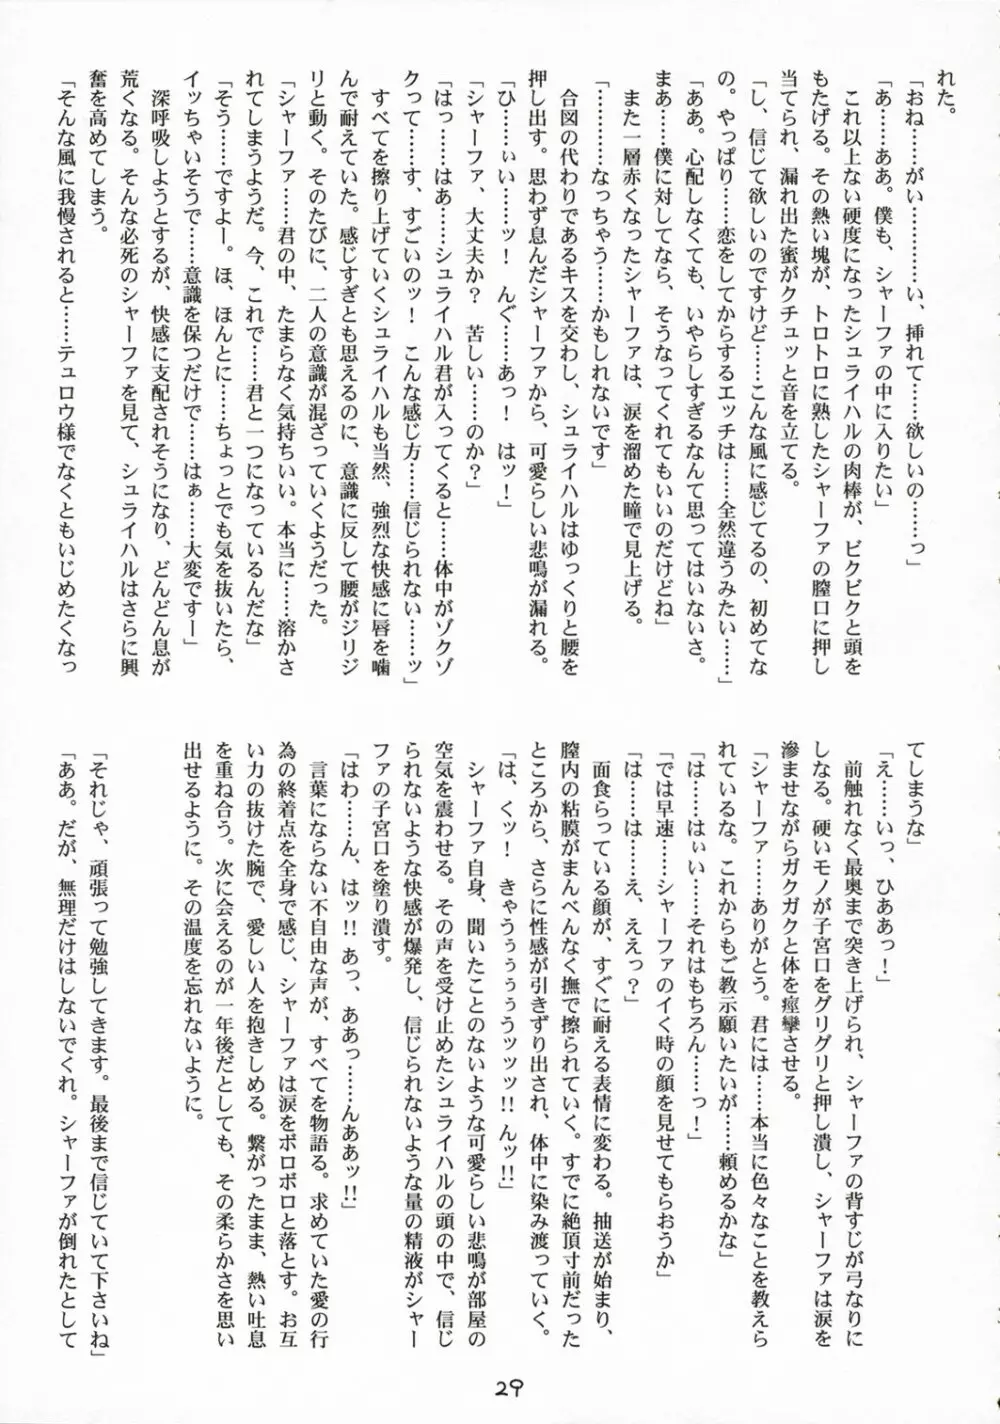 れた。
「おね……がい…………い、挿れて……欲しいの……っ」
「あ……ああ。僕も、シャーファの中に入りたい」
　これ以上ない硬度になったシュライハルの肉棒が、ビクビクと頭を
もたげる。その熱い塊が、トロトロに熟したシャーファの膣口に押し
当てられ、漏れ出た蜜がクチュッと音を立てる。
「し、信じて欲しいのですけど……こんな風に感じてるの、初めてな
の。やっぱり……恋をしてからするエッチは……全然違うみたい……」
「ああ。心配しなくても、いやらしすぎるなんて思ってはいないさ。
まあ……僕に対してなら、そうなってくれてもいいのだけどね」
　また一層赤くなったシャーファは、涙を溜めた瞳で見上げる。
「…………なっちゃう……かもしれないです」
　合図の代わりであるキスを交わし、シュライハルはゆっくりと腰を
押し出す。思わず息んだシャーファから、可愛らしい悲鳴が漏れる。
「ひ……ぃい……ッ！　んぐ……あっ！　はッ！」
「シャーファ、大丈夫か？　苦しい……のか？」
「はっ……はあ……シュライハル君が入ってくると……体中がゾクゾ
クって……す、すごいのッ！　こんな感じ方……信じられない……ッ」
　すべてを擦り上げていくシュライハルも当然、強烈な快感に唇を噛
んで耐えていた。感じすぎとも思えるのに、意識に反して腰がジリジ
リと動く。そのたびに、二人の意識が混ざっていくようだった。
「シャーファ……君の中、たまらなく気持ちいい。本当に……溶かさ
れてしまうようだ。今、これで……君と一つになっているんだな」
「そう……ですよー。ほ、ほんとに……ちょっとでも気を抜いたら、
イッちゃいそうで……意識を保つだけで……はぁ……大変ですー」
　深呼吸しようとするが、快感に支配されそうになり、どんどん息が
荒くなる。そんな必死のシャーファを見て、シュライハルはさらに興
奮を高めてしまう。
「そんな風に我慢されると……テュロウ様でなくともいじめたくなっ
てしまうな」
「え……いっ、ひああっ！」
　前触れなく最奥まで突き上げられ、シャーファの背すじが弓なりに
しなる。硬いモノが子宮口をグリグリと押し潰し、シャーファは涙を
滲ませながらガクガクと体を痙攣させる。
「シャーファ……ありがとう。君には……本当に色々なことを教えら
れているな。これからもご教示願いたいが……頼めるかな」
「は……はぃい……それはもちろん……っ！」
「では早速……シャーファのイく時の顔を見せてもらおうか」
「は……は……え、ええっ？」
　面食らっている顔が、すぐに耐える表情に変わる。抽送が始まり、
膣内の粘膜がまんべんなく撫で擦られていく。すでに絶頂寸前だった
ところから、さらに性感が引きずり出され、体中に染み渡っていく。
「は、くッ！　きゃうぅぅぅぅうッッッ!! んッ!!」
　シャーファ自身、聞いたことのないような可愛らしい悲鳴が部屋の
空気を震わせる。その声を受け止めたシュライハルの頭の中で、信じ
られないような快感が爆発し、信じられないような量の精液がシャー
ファの子宮口を塗り潰す。
「はわ……ん、はッ!! あっ、ああっ……んああッ!!」
　言葉にならない不自由な声が、すべてを物語る。求めていた愛の行
為の終着点を全身で感じ、シャーファは涙をボロボロと落とす。お互
い力の抜けた腕で、愛しい人を抱きしめる。繋がったまま、熱い吐息
を重ね合う。次に会えるのが一年後だとしても、その柔らかさを思い
出せるように。その温度を忘れないように。
「それじゃ、頑張って勉強してきます。最後まで信じていて下さいね」
「ああ。だが、無理だけはしないでくれ。シャーファが倒れたとして
29